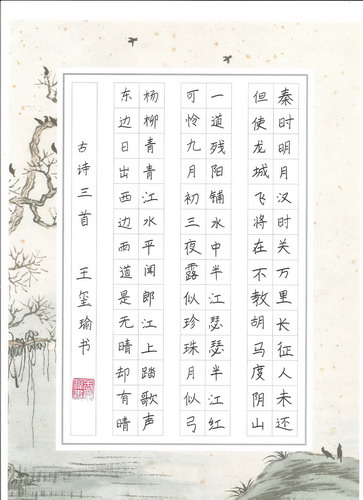 秦时明月汉时关万里长征人未还
但使龙城飞将在不教胡马度阴山
一道残阳铺水中半江瑟瑟半江红
可怜九月初三夜露似珍珠月似弓
杨柳青青江水平闻郎江上踏歌声
东边日出西边雨道是无晴却有晴
古诗三首 王玺瑜书